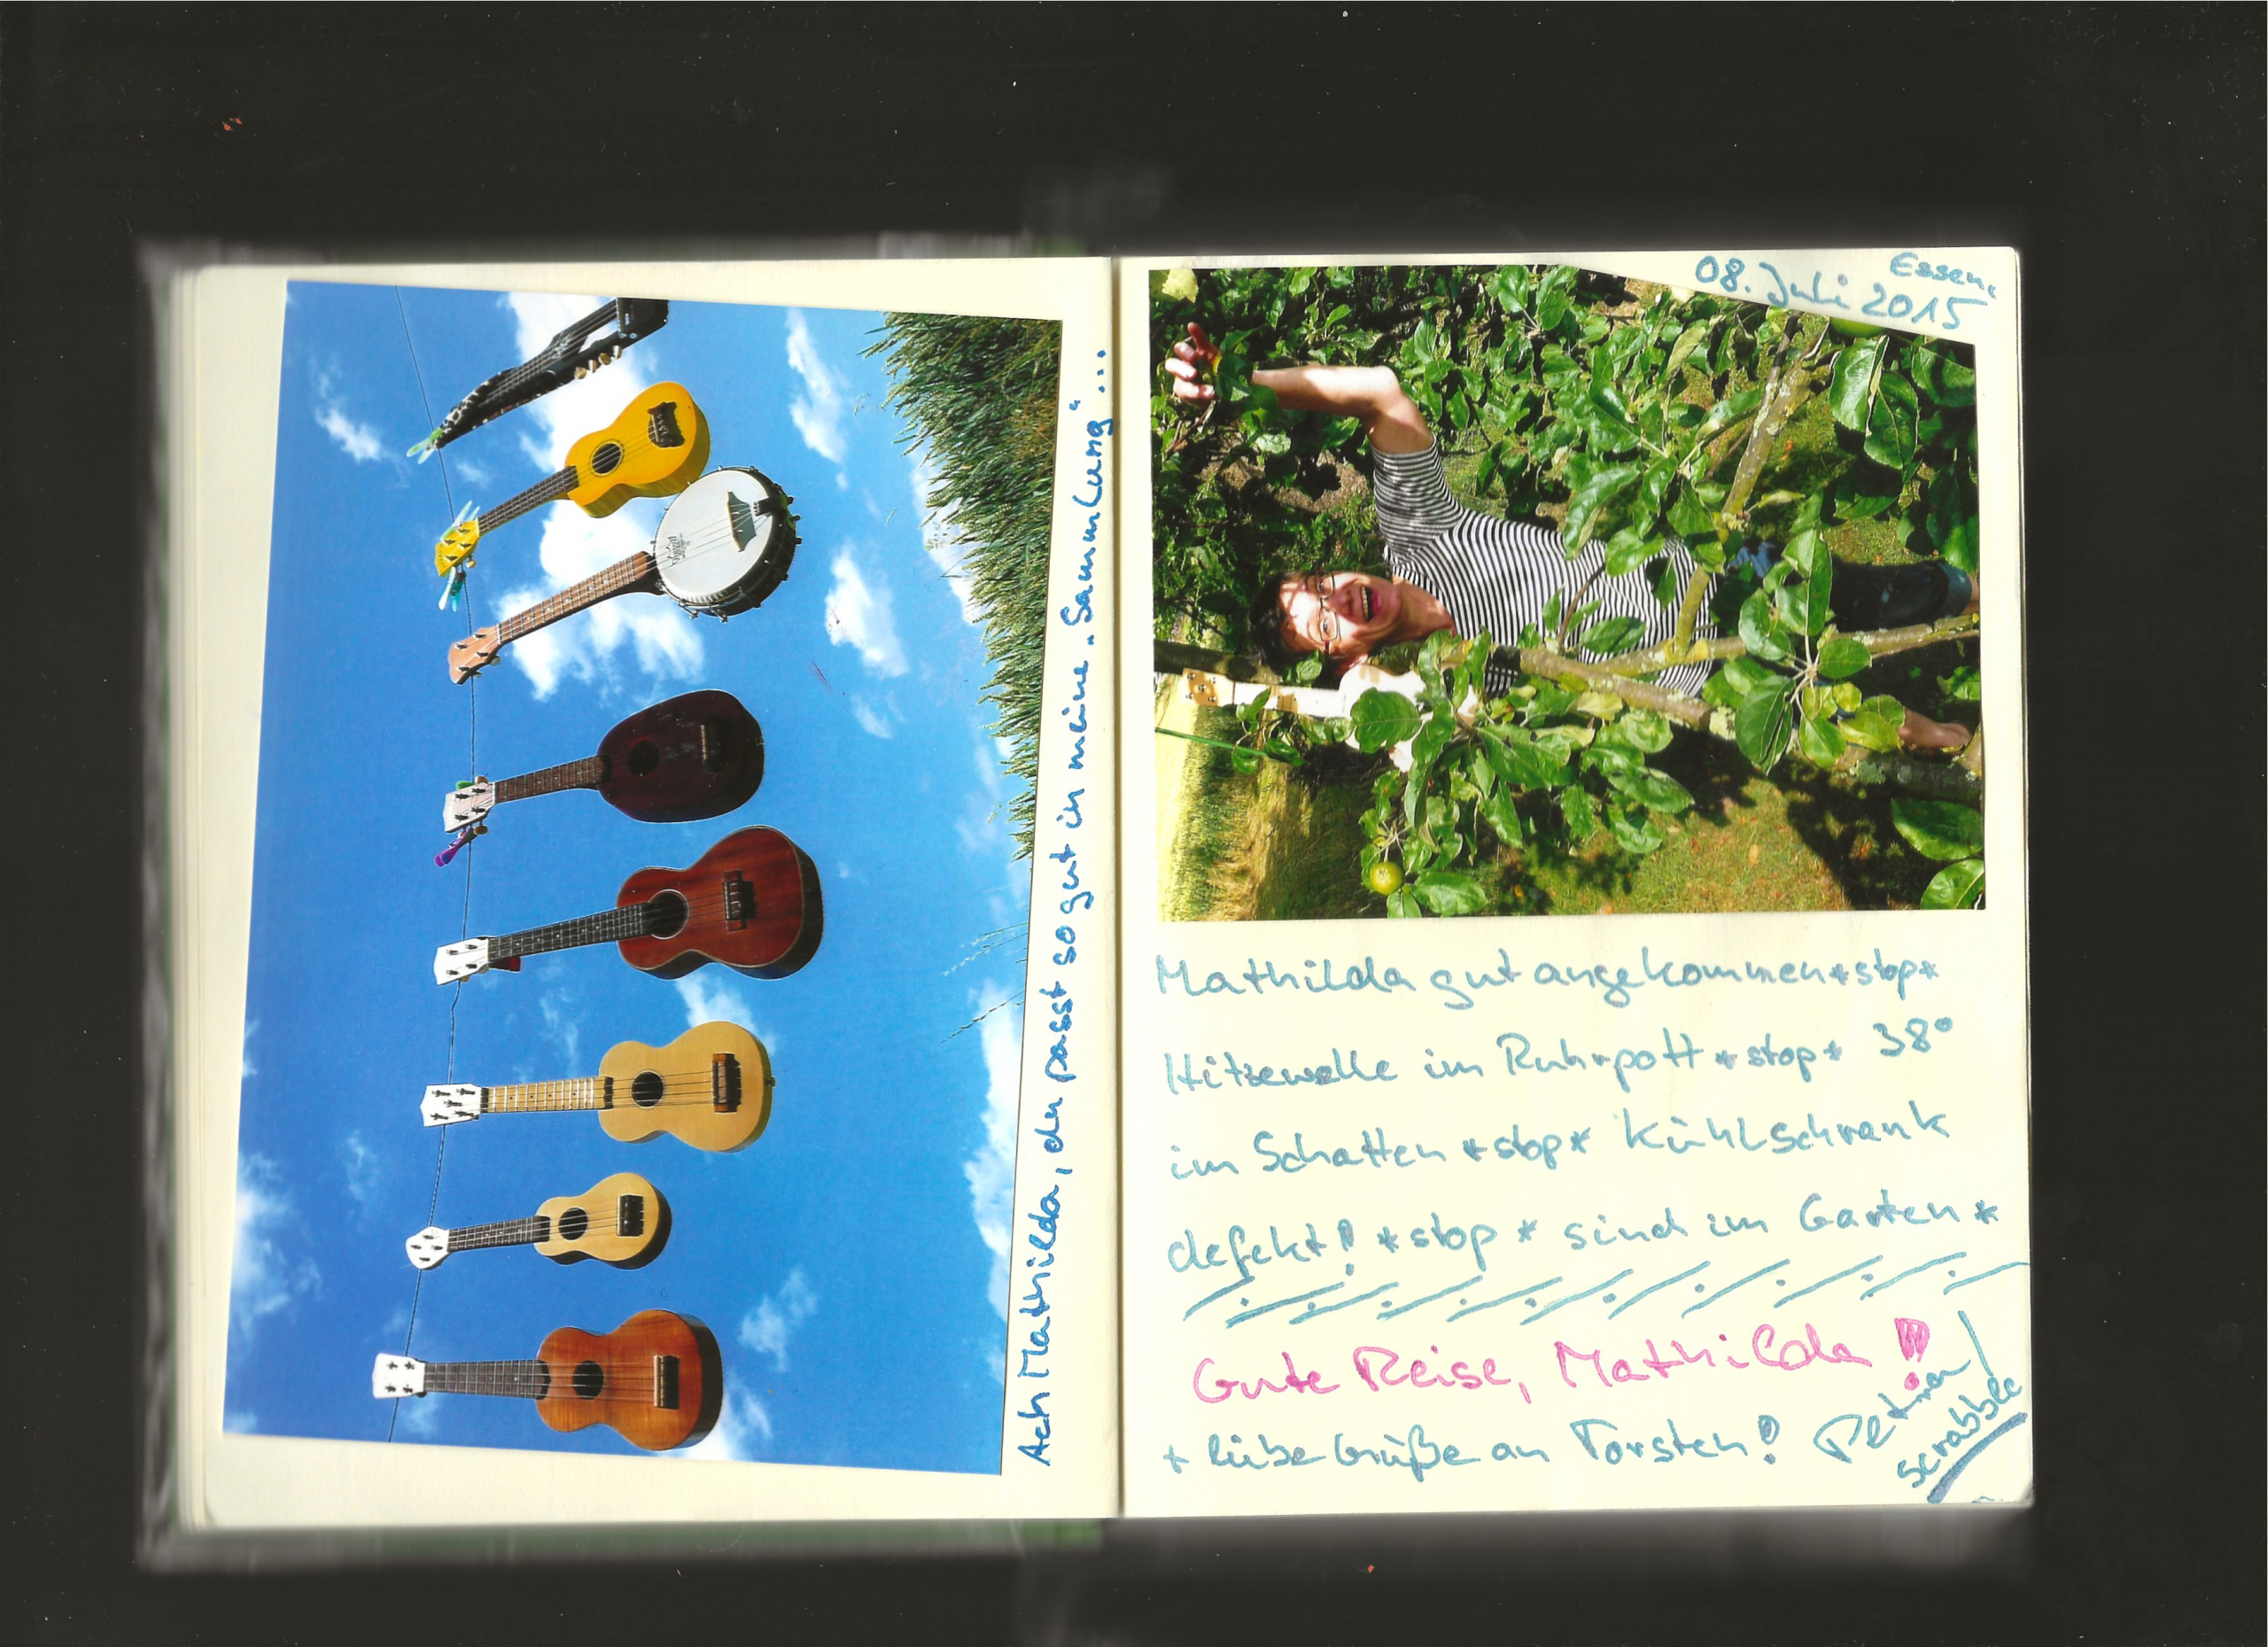 Ach Mathilda, du passt so gut in meine „Sammlung“...
Essen,
08. Juli 2015
Mathilda gut angekommen*stop*
Hitzewelle im Ruhrpott *stop* 38°
im Schatten *stop* Kühlschrank
defekt! *stop* sind im Garten *
Gute Reise, Mathilda!
+ liebe Grüße an Torsten!
scrabble